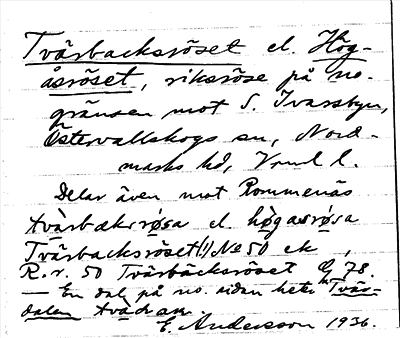 Tvärbacksröset el. Hög-
åsröset, riksröse på no.
gränsen mot S. Ivarsbyn,
Östervallskogs sn, Nord-
marks hd, Vrml l.
Delar även mot Rommenäs
tvärbakrøsa el. högasrøsa
Tvärbacksröset(!) No 50 ek ,
R.r. 50 Tvärbäcksröset G 78.
— En dal på no. sidan heter Tväs-
dalen
E. Andersson 1936.